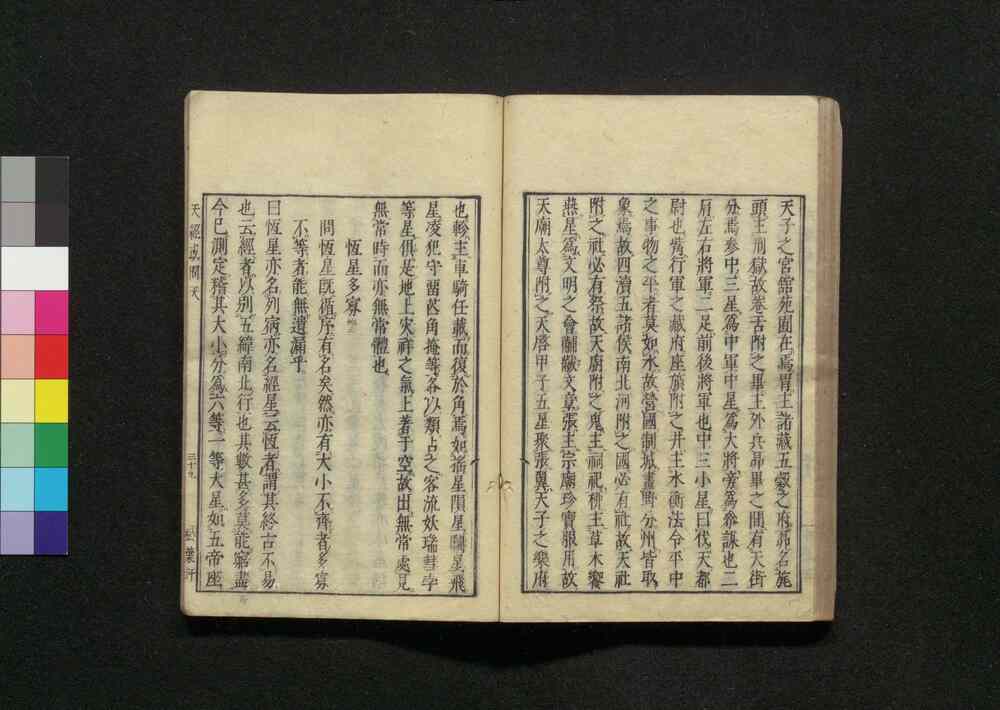 天子之宮舘苑囿在焉胃主諸藏五穀之府昴名旄
頭主刑獄故卷舌附之畢主外兵昴畢之間有天街
分焉參中三星爲中軍中星爲大將旁爲參謀也二
肩左右將軍二足前後將軍也中三小星曰伐天都
尉也觜行軍之藏府座旗附之井主水衡法令平中
之事物之平者莫如水故營國制城畫野分州皆取
象焉故四瀆五諸侯南北河附之國必有社故天社
附之社必有祭故天廟附之鬼主祠祀柳主草木饗
燕星爲文明之會黼黻文章張主宗廟珍寶服用故
天廟太尊附之天啓甲子五星聚張翼天子之樂府
也軫主車騎任載而復於角焉如瑤星隕星鬬星飛
星凌犯守留芒角掩等各以類占之客流妖瑞彗孛
等星俱是地上灾祥之氣上著于空故出無常處見
無常時而亦無常體也
恆星多寡
問恆星既循序有名矣然亦有大小不齊者多寡
不等者能無遺漏乎
曰恆星亦名列宿亦名經星云恆者謂其終古不易
也云經者以別五緯南北行也其數甚多莫能窮盡
今已測定稽其大小分爲六等一等大星如五帝座
天經或問 天
三十九
松葉軒